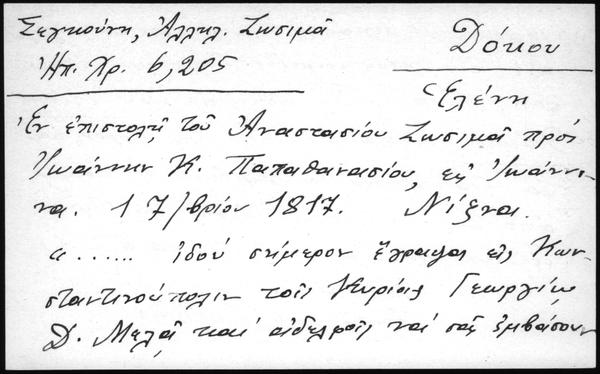 Σεγκούνη, Ἀλληλ. Ζωσιμᾶ
Ἠπ. Χρ. 6, 205
Δόκου
Ἑλένη
Ἐν ἐπιστολῇ τοῦ Ἀναστασίου Ζωσιμᾶ πρός
Ἰωάννην Κ. Παπαθανασίου, εἰς Ἰωάννι-
να. 1 7/βρίου 1817. Νίζνα.
"...... ἰδού σήμερον ἔγραψα εἰς Κων-
σταντινούπολιν τοῖς Κυρίοις Γεωργίῳ
Δ. Μελᾷ καί ἀδελφοῖς νά σᾶς ἐμβάσουν